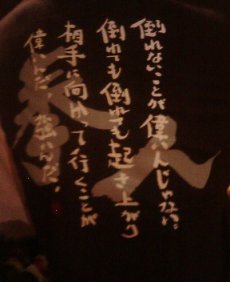 倒れないことが偉いんじゃない。
倒れても倒れても起き上がり
相手に向かって行くことが
偉いんだ、強いんだ!